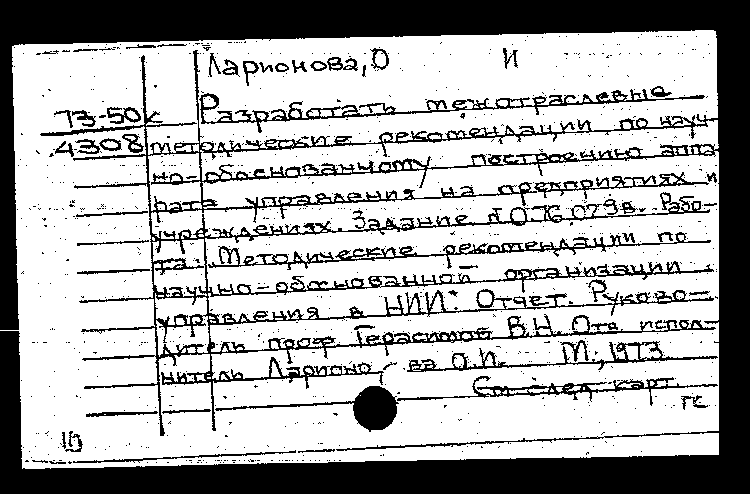 Ларионова, О И
73-50к Разработать межотраслевые
4308 методические рекомендации по науч-
но-обоснованному построению аппа-
рата управления на предприятиях и
учреждениях. Задание Рабо-
та: Методические рекомендации по
научно-обоснованной организации
управления в НИИ. Отчет. Руково-
дитель проф. Герасимов В.Н. Отв. испол-
нитель Ларионова О.И. М., 1973
См след карт.
ГС